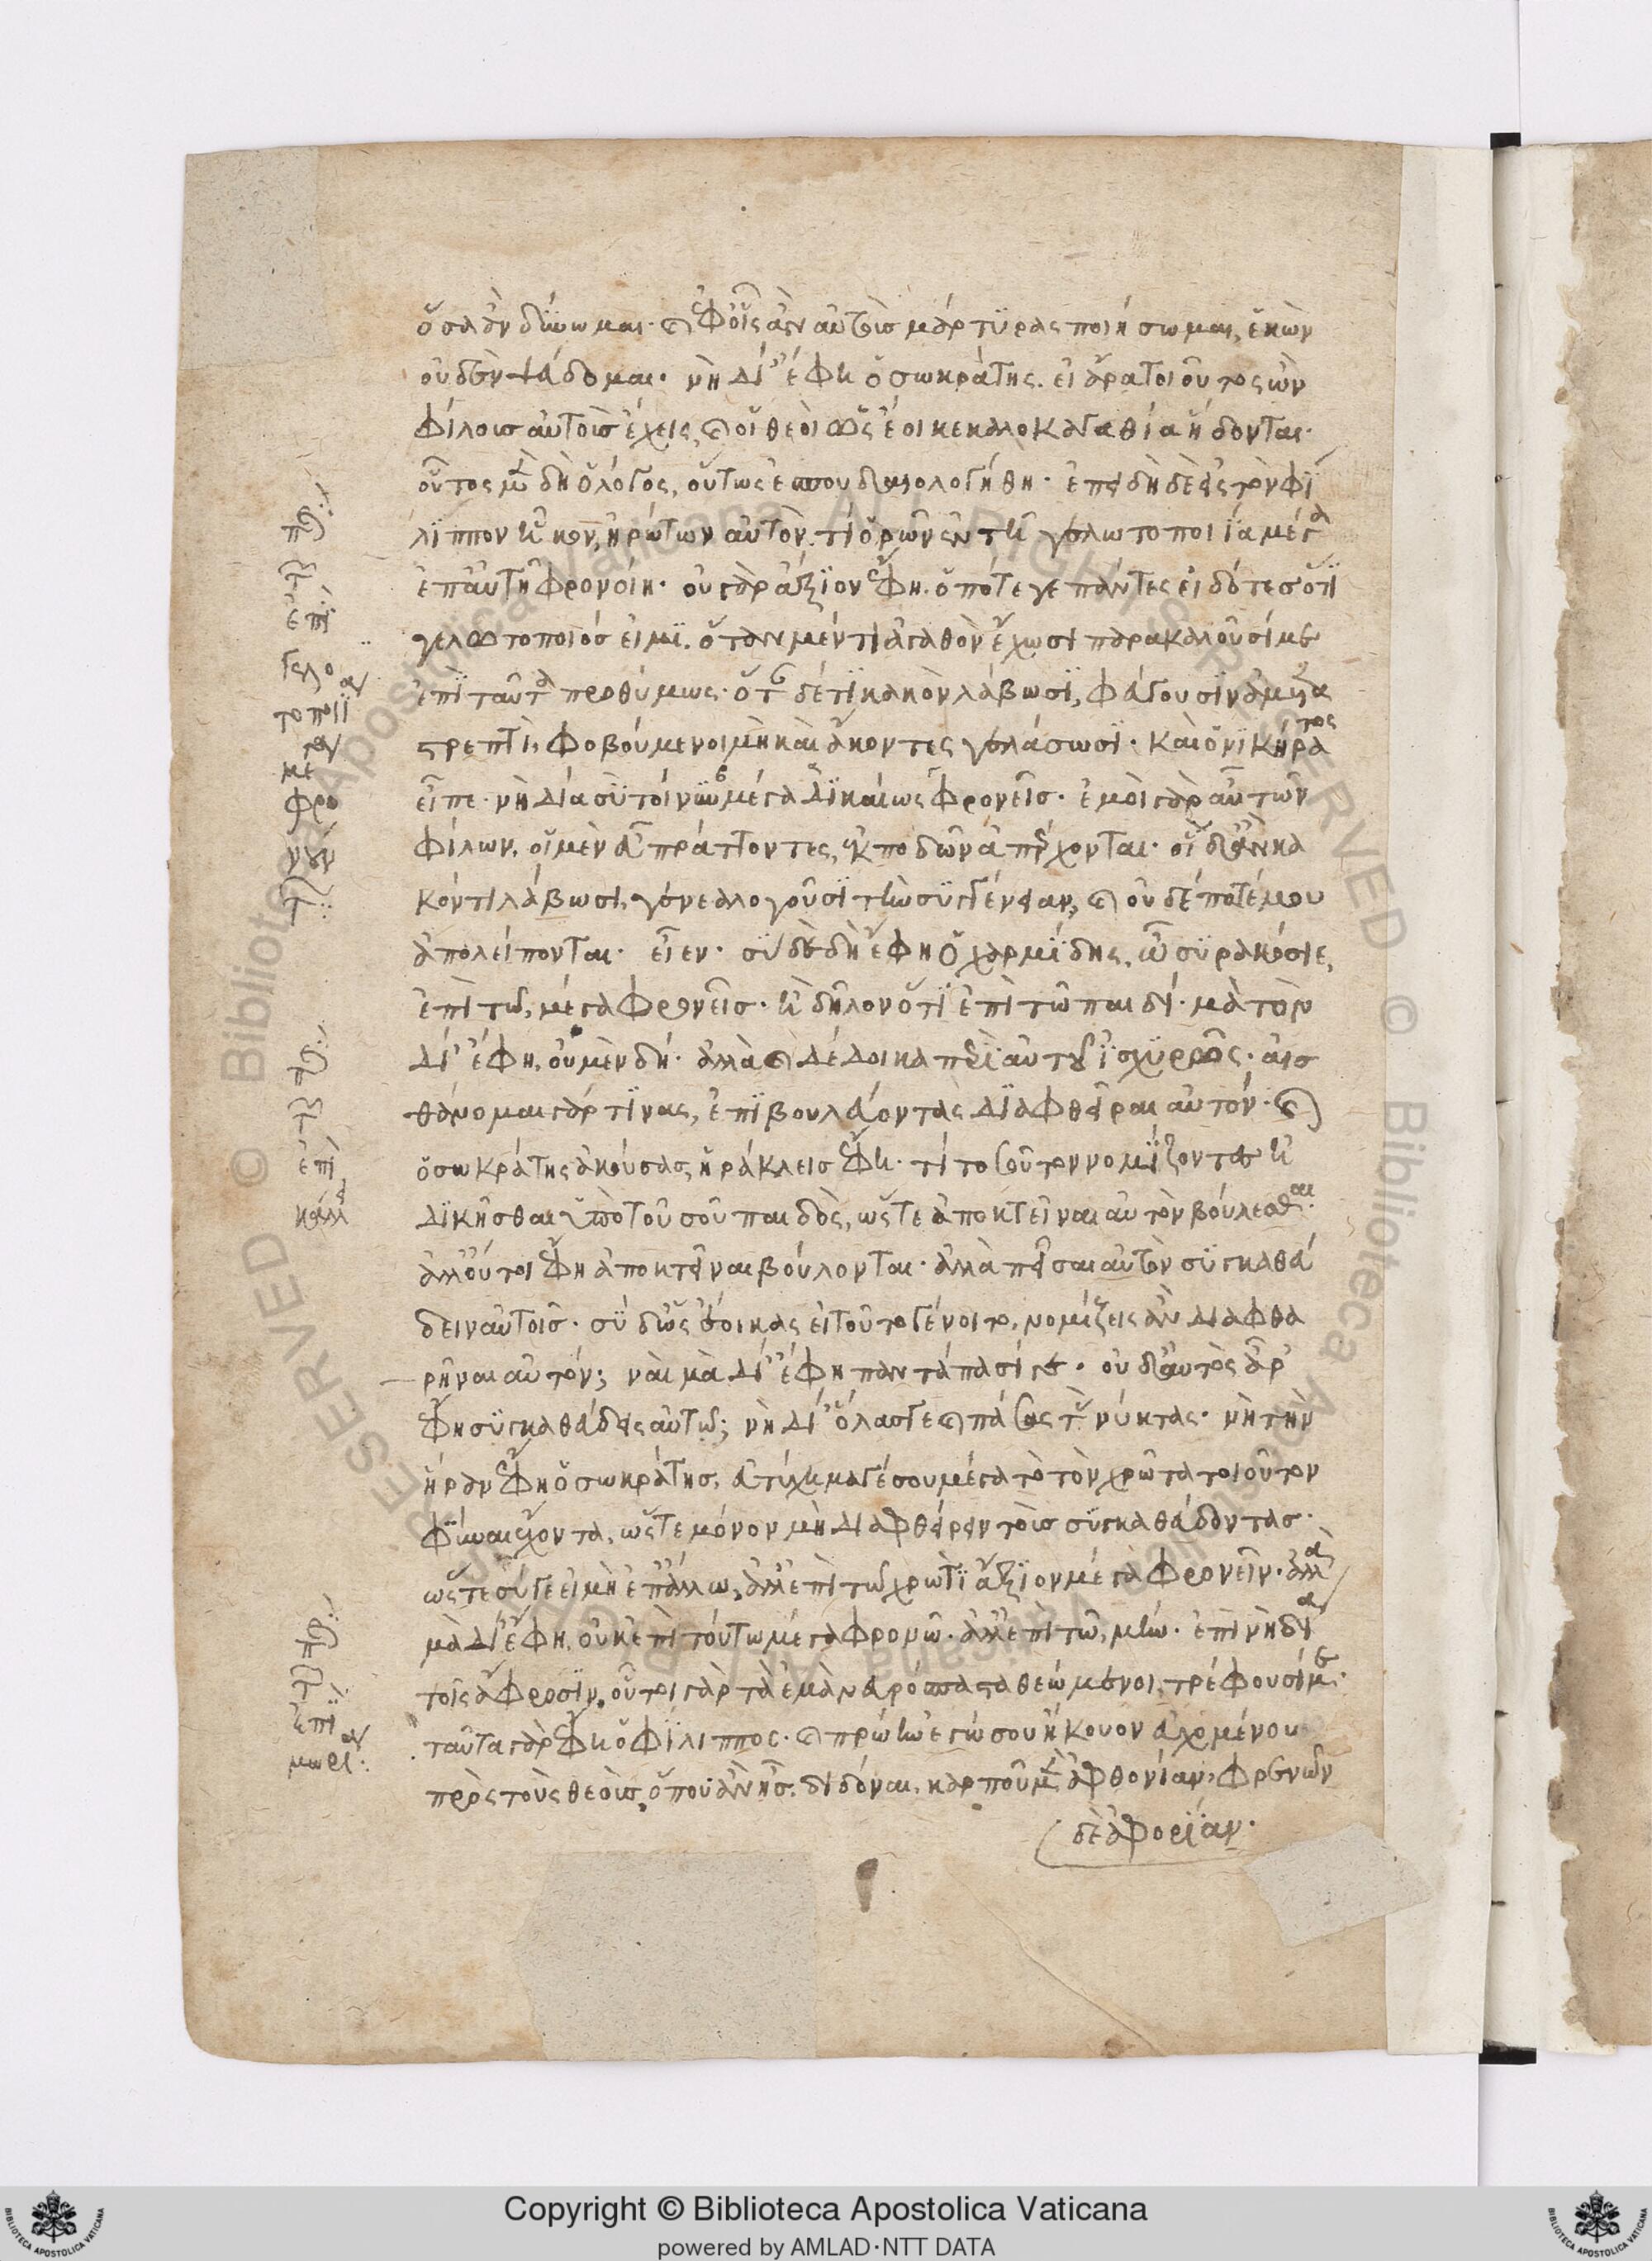 ὅσα ἂν δύνωμαι· καὶ ἐφ' οἷς ἂν αὐτοὺς μάρτυρας ποιήσωμαι, ἑκὼν
οὐδὲν ψεύδομαι· νὴ Δί' ἔφη ὁ σωκράτης. εἰ ἄρα τοιοῦτος ὢν
φίλους αὐτοὺς ἔχεις, καὶ οἱ θεοὶ ὡς ἔοικε καλοκἀγαθία ἥδονται·
οὗτος μὲν δὴ ὁ λόγος, οὕτως ἐσπουδαιολογήθη· ἐπειδὴ δὲ εἰς τὸν φί
λιππον ἧκον, ἠρώτων αὐτὸν. τί ὁρῶν ἐν τῇ γελωτοποιία μέγα
ἐπ' αὐτῇ φρονοίη· οὐ γὰρ ἄξιον ἔφη. ὁπότε γε πάντες εἰδότες ὅτι
γελωτοποιός εἰμι. ὅταν μέν τι ἀγαθὸν ἔχωσι παρακαλοῦσί με
ἐπὶ ταῦτα προθύμως· ὅταν δέ τι κακὸν λάβωσι, φεύγουσιν ἀμετα
στρεπτὶ, φοβούμενοι μὴ καὶ ἄκοντες γελάσωσι· καὶ ὁ νικήρατος
εἶπε· νὴ Δία σὺ τοίνυν μέγα δικαίως φρονεῖς· ἐμοὶ γὰρ αὖ τῶν
φίλων, οἱ μὲν εὖ πράττοντες, ἐκποδὼν ἀπέρχονται· οἳ δ' ἂν κα
κόν τι λάβωσι, γενεαλογοῦσι τὴν συγγένειαν, καὶ οὐδέποτέ μου
ἀπολείπονται· εἶεν· σὺ δὲ δὴ ἔφη ὁ χαρμίδης, ὦ συρακόσιε,
ἐπὶ τῷ, μέγα φρονεῖς· ἢ δῆλον ὅτι ἐπὶ τῷ παιδί· μὰ τὸν
Δί' ἔφη, οὐ μὲν δή· ἀλλὰ καὶ δέδοικα περὶ αὐτοῦ ἰσχυρῶς· αἰσ
θάνομαι γάρ τινας, ἐπιβουλεύοντας διαφθεῖραι αὐτόν· καὶ
ὁ σωκράτης ἀκούσας, ἡράκλεις ἔφη· τί τοσοῦτον νομίζοντες ἠ
δικῆσθαι ὑπὸ τοῦ σοῦ παιδὸς, ὥστε ἀποκτεῖναι αὐτὸν βούλεσθαι·
ἀλλ' οὔτοι ἔφη ἀποκτεῖναι βούλονται· ἀλλὰ πεῖσαι αὐτὸν συγκαθεύ
δειν αὐτοῖς· σὺ δ' ὡς ἔοικας εἰ τοῦτο γένοιτο, νομίζεις ἂν διαφθα
ρῆναι αὐτόν; ναὶ μὰ Δί' ἔφη παντάπασί γε· οὐδ' αὐτὸς ἄρ'
ἔφη συγκαθεύδεις αὐτῷ; νὴ Δί' ὅλας γε καὶ πάσας τὰς νύκτας· νὴ τὴν
ἥραν ἔφη ὁ σωκράτης, εὐτύχημά γέ σου μέγα τὸ τὸν χρῶτα τοιοῦτον
φῦναι ἔχοντα, ὥστε μόνον μὴ διαφθείρειν τοὺς συγκαθεύδοντας·
ὥστε σύ γε εἰ μὴ ἐπ' ἄλλω, ἀλλ' ἐπὶ τῷ χρωτὶ ἄξιον μέγα φρονεῖν· ἀλλὰ
μὰ Δί' ἔφη, οὐκ ἐπὶ τούτω μέγα φρονῶ· ἀλλ' ἐπὶ τῷ, μὴν· ἐπὶ νὴ δία
τοῖς ἄφροσιν, οὗτοι γὰρ τὰ ἐμὰ νευρόσπαστα θεώμενοι, τρέφουσί με·
ταῦτα γὰρ ἔφη ὁ φίλιππος· καὶ πρώην ἐγώ σου ἤκουον εὐχομένου
πρὸς τοὺς θεοὺς, ὅπου ἂν ᾖς, διδόναι, καρποῦ μὲν ἀφθονίαν, φρενῶν
δὲ ἀφορίαν·
ἐπὶ
γελω
τοποιί
αν
με
φρο
νοῦν
ἐπὶ
κάλλ
ἐπὶ
μωρί
αν
Copyright © Biblioteca Apostolica Vaticana
powered by AMLAD·NTT DATA